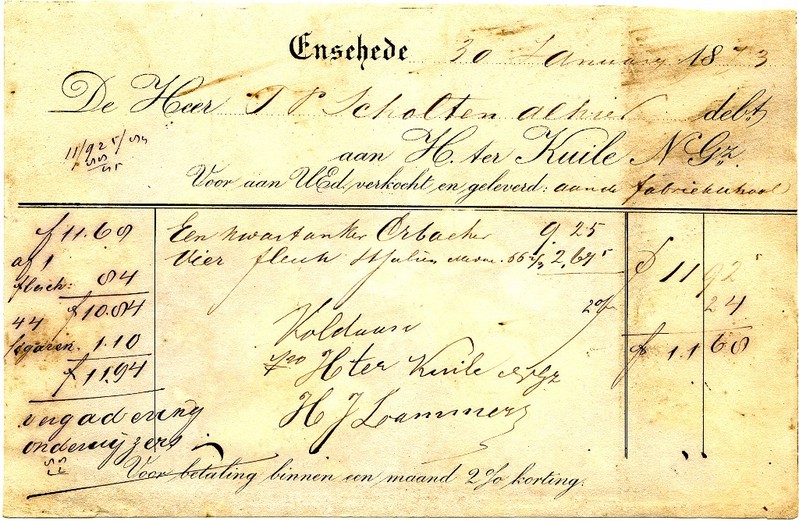 Enschede 30 January 1873
De Heer T P Scholten debt
aan H. ter Kuile N Gz.
Voor aan UEd. verkocht en geleverd: aan de fabriekschool
11/925/
f 11.68
af 1
flesch: 84
f 10.84
44
sigaren. 1.10
f 11.94
vergadering
onderwijzers
Een kwartanker Orbacher 9 25
Vier flesch St Julien 2.67 5
f 11 92 5
2% 24
f 11 68
Voldaan
H ter Kuile NGz
H J Lammers
Voor betaling binnen een maand 2% korting.